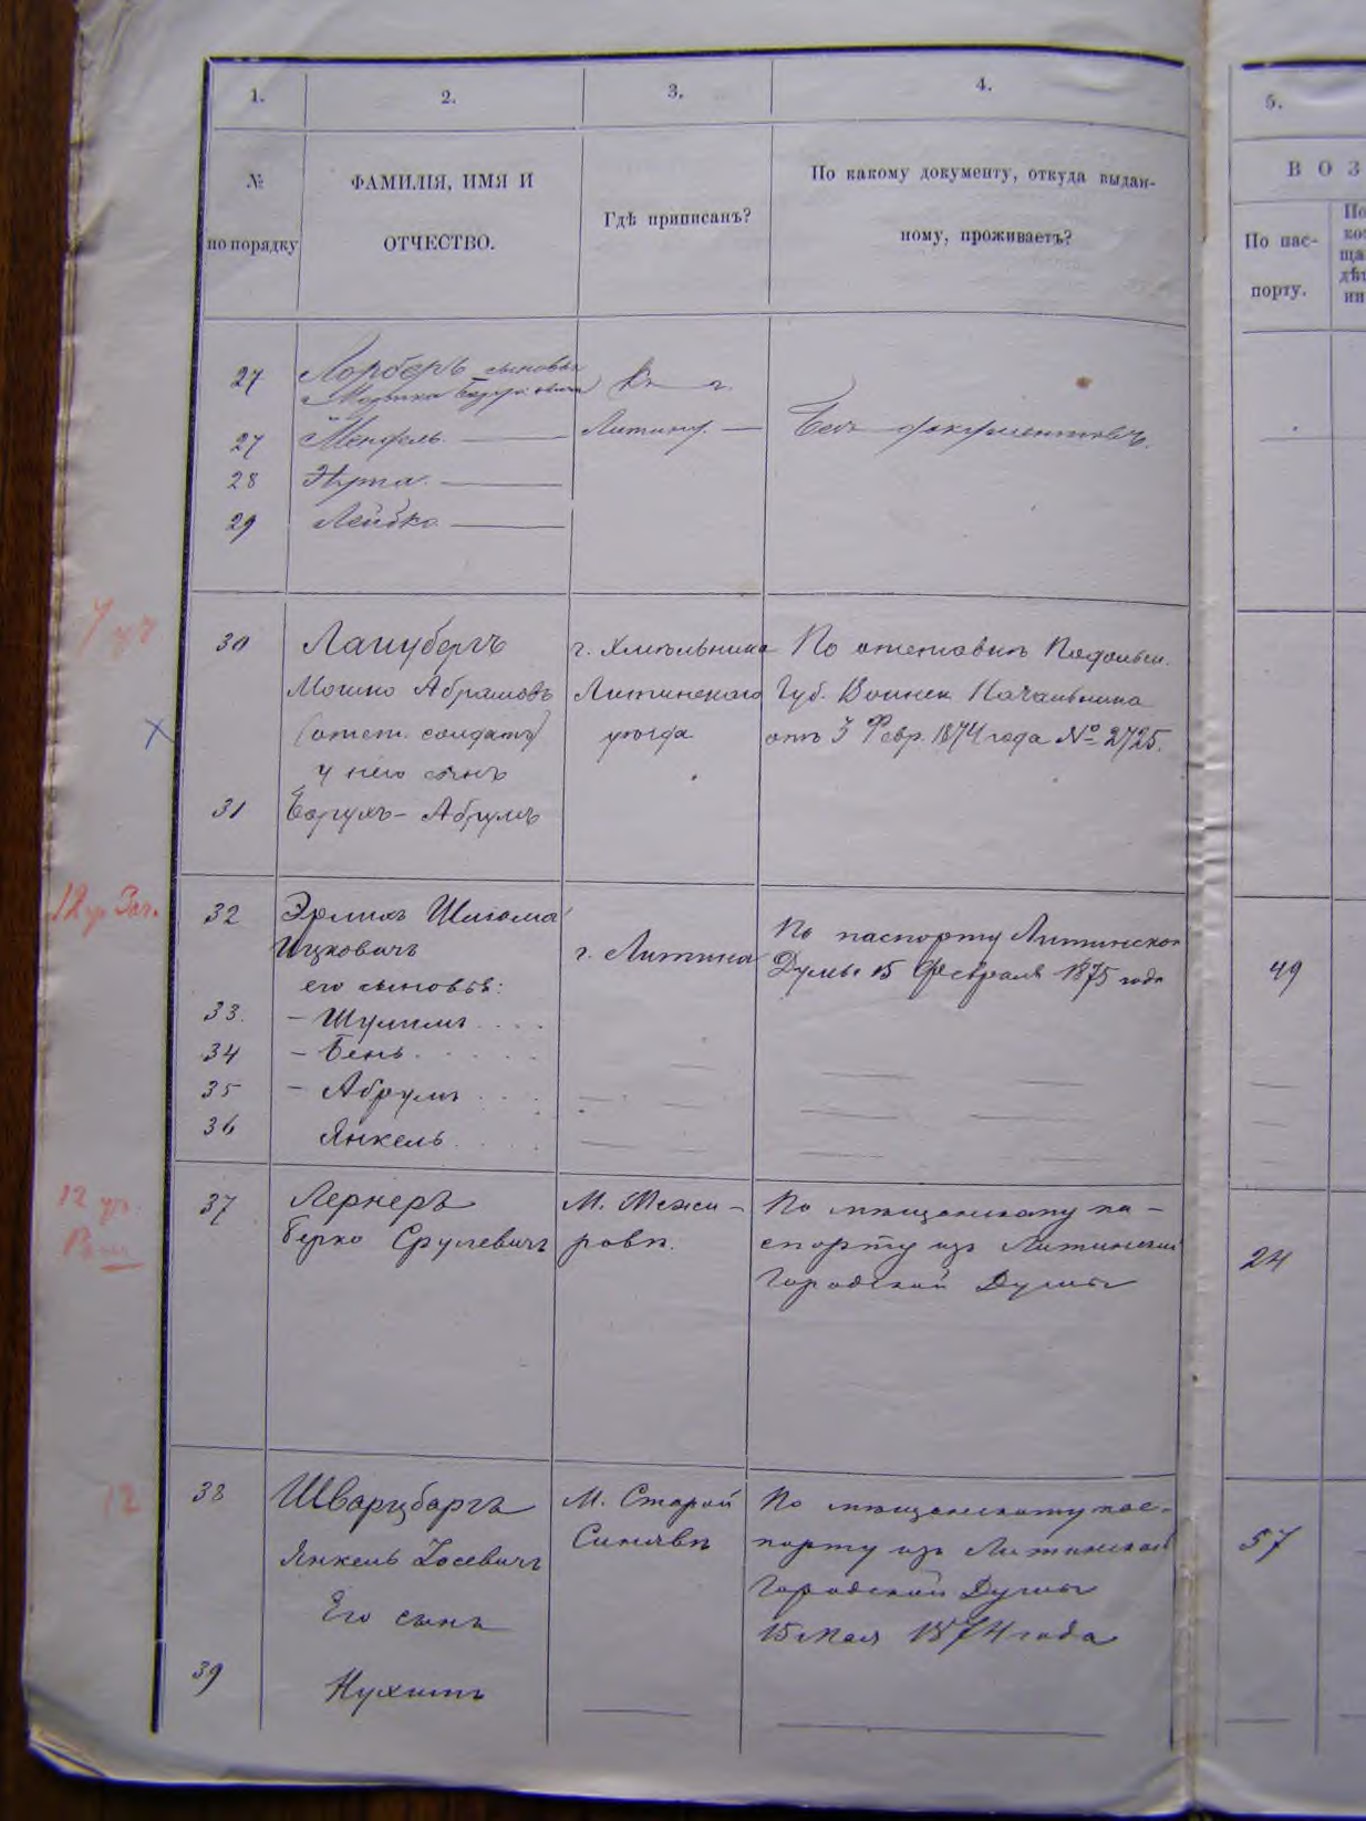 1.
2.
3.
4.
5.
№
по порядку
ФАМИЛІЯ, ИМЯ И
ОТЧЕСТВО.
Гдѣ приписанъ?
По какому документу, откуда выдан-
ному, проживаетъ?
В О З
По пас-
порту.
27
Лорберъ сыновья
27
Мендель
Литину
Безъ документовъ.
28
29
Лейбко
30
г. Хмѣльника
По отставкѣ Подольск.
Мошко Абрамовъ
Литинскаго
Губ. Воинск Начальника
(отст. солдатъ)
уѣзда
отъ 3 Февр. 1874 года № 2725.
у него сынъ
31
Абрумъ
12 ур Заг.
32
Эрлихъ Шлема
Ицковичъ
г. Литина
По паспорту Литинской
Думы 15 Февраля 1875 года
49
его сыновья:
33.
– Шулимъ . . . .
34
– Бень . . . . .
35
– Абрумъ . . . .
36
Янкель . . . .
12 ур.
37
Лернеръ
Берко Срулевичъ
М. Межи-
ровъ.
По мѣщанскому па-
спорту изъ Литинской
Городской Думы
24
12
38
Шварцбергъ
Янкель Іосевичъ
Его сынъ
М. Старой
Синявѣ
По мѣщанскому пас-
порту изъ Литинской
Городской Думы
15 Мая 1874 года
57
39
Нухимъ